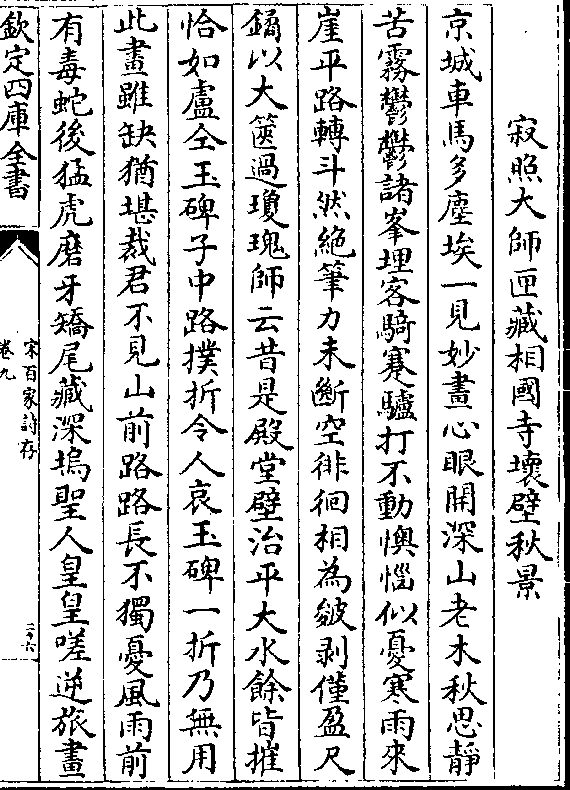 寂照大師匣藏相國寺壞壁秋景
京城車馬多塵埃一見妙畫心眼開深山老木秋思靜
苦霧鬱鬱諸峯埋客騎蹇驢打不動懊惱似憂寒雨來
崖平路轉斗然絶筆力未斷空徘徊相為皴剥僅盈尺
鐍以大篋過瓊瑰師云昔是殿堂壁治平大水餘皆摧
恰如盧仝玉碑子中路撲折令人哀玉碑一折乃無用
此畫雖缺猶堪裁君不見山前路路長不獨憂風雨前
有毒蛇後猛虎磨牙矯尾藏深塢聖人皇皇嗟逆旅畫
欽定四庫全書
宋百家詩存
卷九
二十六